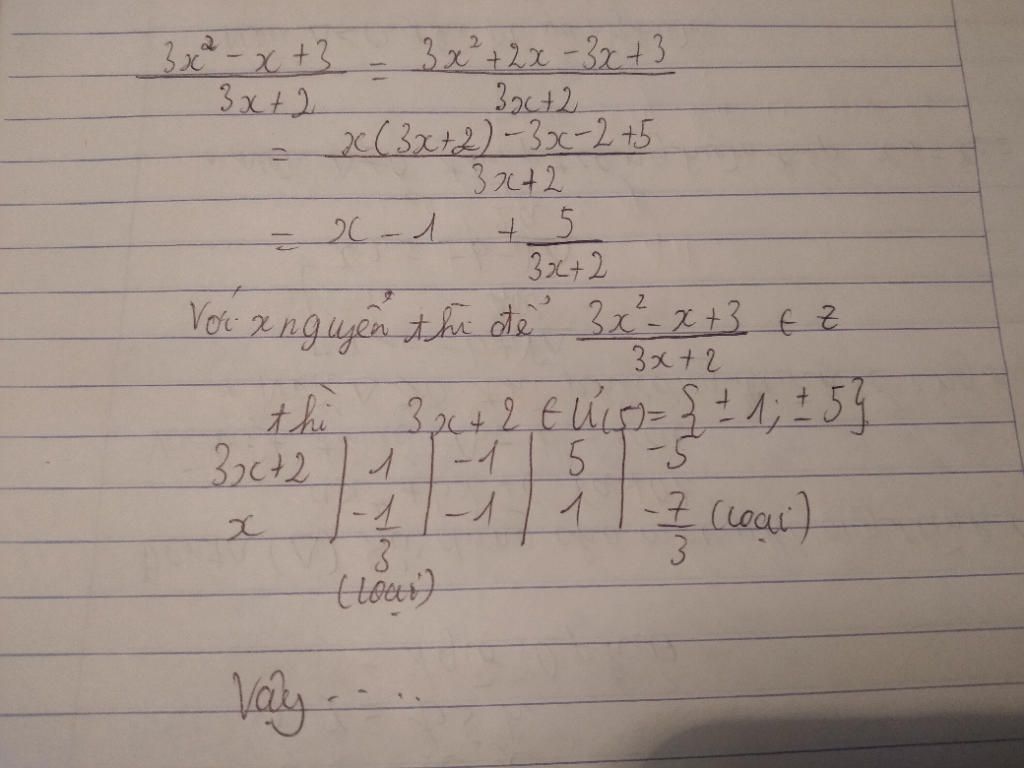 3x² - x + 3 / 3x + 2 = 3x² + 2x - 3x + 3 / 3x + 2
= x(3x+2) - 3x - 2 + 5 / 3x + 2
= x - 1 + 5 / 3x + 2
Với x nguyên thì để 3x² - x + 3 / 3x + 2 ∈ Z
thì 3x + 2 ∈ Ư(5) = {± 1; ± 5}
3x + 2 | 1 | -1 | 5 | -5
x | -1/3 (loại) | -1 | 1 | -7/3 (loại)
Vậy - - . .